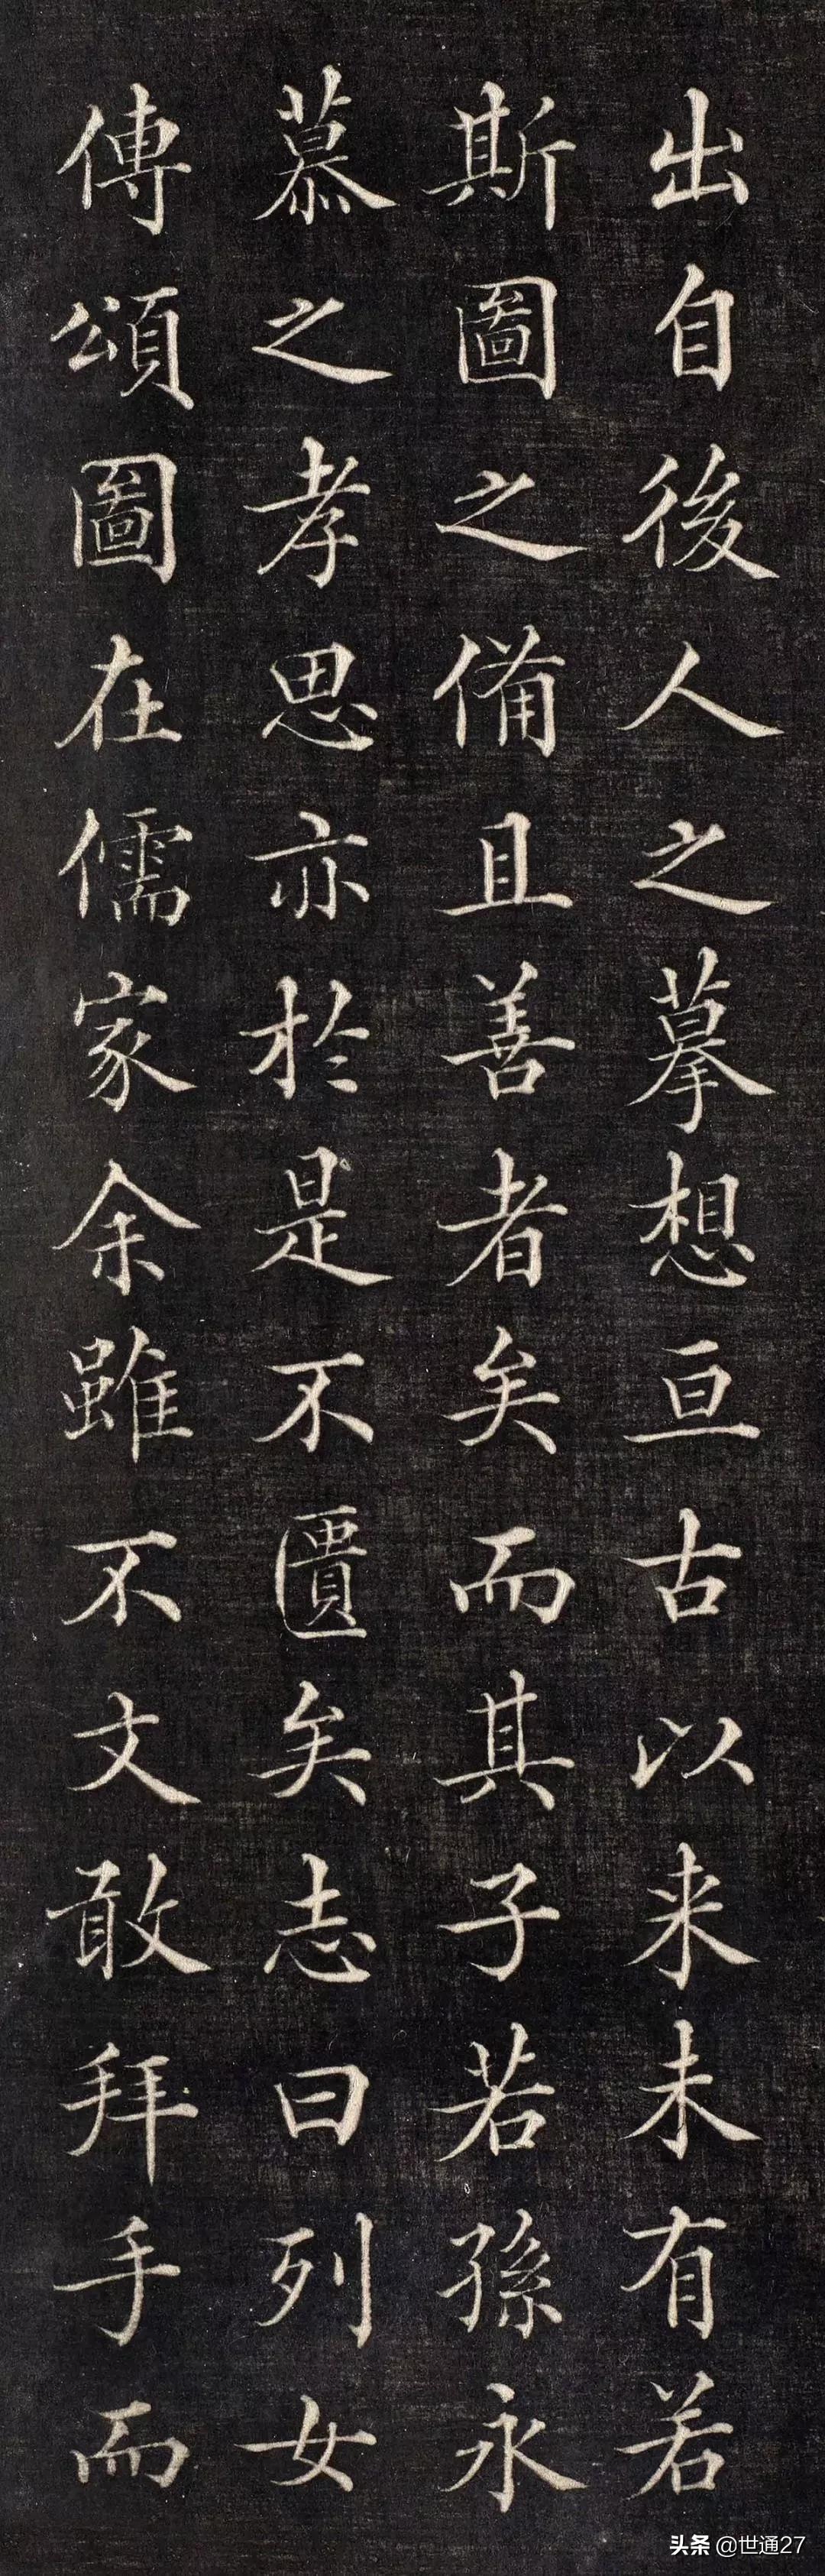 出自後人之摹想亘古以来未有若
斯圖之備且善者矣而其子若孫永
慕之孝思亦於是不匱矣志曰列女
傳頌圖在儒家余雖不文敢拜手而
头条 @世通27